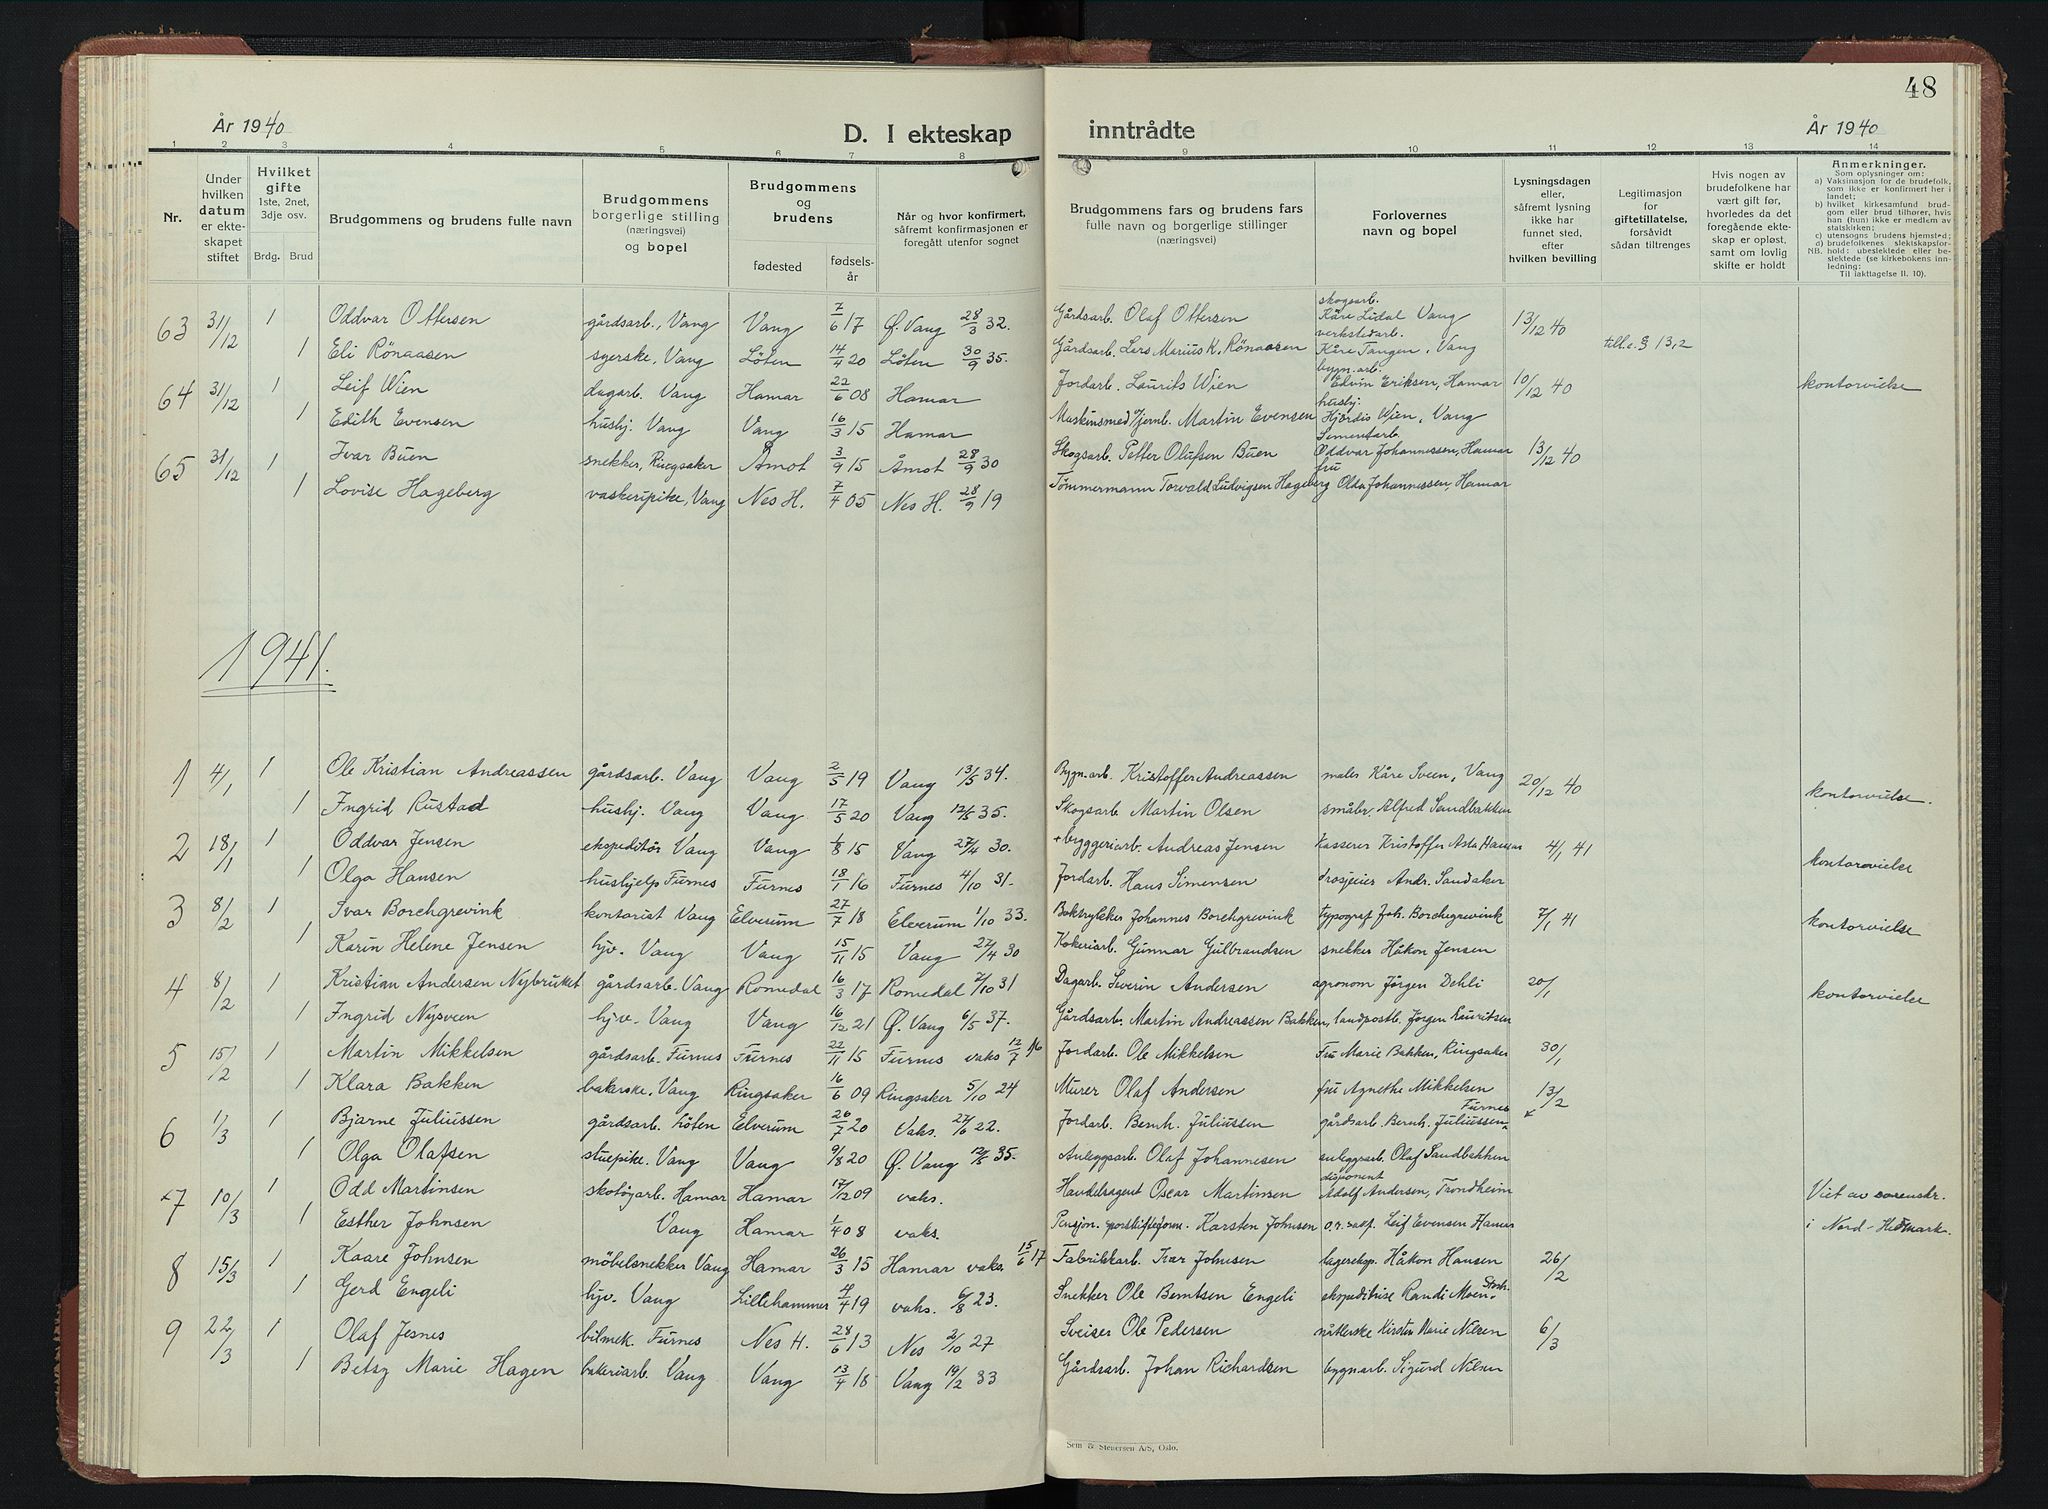 48
År 1940
D. I ekteskap inntrådte
År 1940
1 2 3 4 5 6 7 8 9 10 11 12 13 14
Nr.
Under hvilken datum er ekteskapet stiftet
Hvilket gifte 1ste, 2net, 3dje osv.
Brdg. Brud
Brudgommens og brudens fulle navn
Brudgommens og brudens borgerlige stilling (næringsvei) og bopel
Brudgommens og brudens
fødested
fødsels-år
Når og hvor konfirmert, såfremt konfirmasjonen er foregått utenfor sognet
Brudgommens fars og brudens fars fulle navn og borgerlige stillinger (næringsvei)
Forlovernes navn og bopel
Lysningsdagen eller, såfremt lysning ikke har funnet sted, efter hvilken bevilling
Legitimasjon for giftetillatelse, forsåvidt sådan tiltrenges
Hvis nogen av brudefolkene har vært gift før, hvorledes da det foregående ekteskap er opløst, samt om lovlig skifte er holdt
Anmerkninger.
Som oplysninger om:
a) Vaksinasjon for de brudefolk, som ikke er konfirmert her i landet;
b) hvilket kirkesamfund brudgom eller brud tilhører, hvis han (hun) ikke er medlem av statskirken;
c) utensogns brudens hjemsted;
d) brudefolkenes slekiskapsforhold: ubeslektede eller beslektede (se kirkebokens innledning:
NB.
Til iakttagelse II. 10).
63 31/12 1 Oddvar Ottersen gårdsarb., Vang Vang 7/6 17 Ø. Vang 28/3 32. Gårdsarb. Olaf Ottersen skogsarb. Kåre Lidal Vang 13/12 40
1 Eli Rönaasen syerske, Vang Löten 14/4 20 Löten 30/9 35. Gårdsarb. Lars Marius K. Rönaasen verkstedarb. Kåre Tangen, Vang till. e. § 13,2
64 31/12 1 Leif Wien dagarb. Vang Hamar 22/6 08 Hamar Jordarb. Laurits Wien bygn.arb. Edvin Eriksen, Hamar 10/12 40 kontorvielse
1 Edith Evensen hushj. Vang Vang 16/3 15 Hamar Maskinsmed v/jernb. Martin Evensen hushj. Hjördis Wien, Vang
65 31/12 1 Ivar Buen snekker, Ringsaker Åmot 3/9 15 Åmot 28/9 30 Skogsarb. Petter Olufsen Buen Sementarb. Oddvar Johannessen, Hamar 13/12 40
1 Lovise Hageberg vaskeripike, Vang Nes H. 7/4 05 Nes H. 28/9 19 Tömmermann Torvald Ludvigsen Hageberg fru Olda Johannessen, Hamar
1941.
1 4/1 1 Ole Kristian Andreassen gårdsarb. Vang Vang 2/5 19 Vang 13/5 34. Bygn.arb. Kristoffer Andreassen maler Kåre Sveen, Vang 20/12 40 kontorvielse.
1 Ingrid Rustad hushj. Vang Vang 17/5 20 Vang 12/5 35. Skogsarb Martin Olsen småbr. Alfred Sandbakken
2 18/1 1 Oddvar Jensen ekspeditör Vang Vang 1/8 15 Vang 27/4 30. + byggeriarb. Andreas Jensen Kasserer Kristoffer Asta Hamar 4/1 41 kontorvielse
1 Olga Hansen hushjelp Furnes Furnes 18/1 16 Furnes 4/10 31. Jordarb. Hans Simensen drosjeeier Andr. Sandaker
3 8/2 1 Ivar Borchgrevink kontorist Vang Elverum 27/7 18 Elverum 1/10 33. Boktrykker Johannes Borchgrevink typograf Joh. Borchgrevink 7/1 41 kontorvielse
1 Karin Helene Jensen hjv. Vang Vang 15/11 15 Vang 27/4 30 Kokeriarb. Gunnar Gulbrandsen snekker Håkon Jensen
4 8/2 1 Kristian Andersen Nybruket gårdsarb. Vang Romedal 16/3 17 Romedal 7/10 31 Dagarb. Severin Andersen agronom Jörgen Dehli 20/1 kontorvielse
1 Ingrid Nysveen hjv. Vang Vang 16/12 21 Ø. Vang 6/5 37. Gårdsarb. Martin Andreassen Bakken, landpostb. Jörgen Lauritsen
5 15/2 1 Martin Mikkelsen gårdsarb. Furnes Furnes 22/11 15 Furnes vaks 12/7 16 Jordarb. Ole Mikkelsen Fru Marie Bakken, Ringsaker 30/1
1 Klara Bakken bakerske, Vang Ringsaker 16/6 09 Ringsaker 5/10 24 Murer Olaf Andersen fru Agnethe Mikkelsen Furnes
6 1/3 1 Bjarne Juliussen gårdsarb. Löten Elverum 26/7 20 Vaks. 27/6 22. Jordarb. Bernh. Juliussen gårdsarb. Bernh. Juliussen 13/2
1 Olga Olafsen stuepike. Vang Vang 9/8 20 Ø. Vang 12/5 35. Anleggsarb. Olaf Johannesen anleggsarb Olaf Sandbakken
7 10/3 1 Odd Martinsen skotöyarb. Hamar Hamar 17/12 09 vaks. Handelsagent Oscar Martinsen disponent Adolf Andersen, Trondheim Viet av sorenskr.
1 Esther Johnsen Vang Hamar 1/4 08 vaks. Pensjon. sporskifteform. Karsten Johnsen o.r. sakf. Leif Evensen Hamar i Nord-Hedmark.
8 15/3 1 Kaare Johnsen möbelsnekker Vang Hamar 26/3 15 Hamar vaks. 15/6 17 Fabrikkarb. Ivar Johnsen lagereksp. Håkon Hansen 26/2
1 Gerd Engeli hjv. Vang Lillehammer 4/4 19 vaks. 6/8 23. Snekker Ole Berntsen Engeli ekspeditrise Randi Moen
9 22/3 1 Olaf Jesnes bilmek. Furnes Nes H. 28/6 13 Nes 2/10 27 Sveiser Ole Pedersen nåtlerske Kirsten Marie Nilsen 6/3
1 Betsy Marie Hagen bakeriarb. Vang Vang 13/4 18 Vang 19/2 33 Gårdsarb. Johan Richardsen bygn.arb. Sigurd Nilsen
Sem & Stenersen A/S, Oslo.